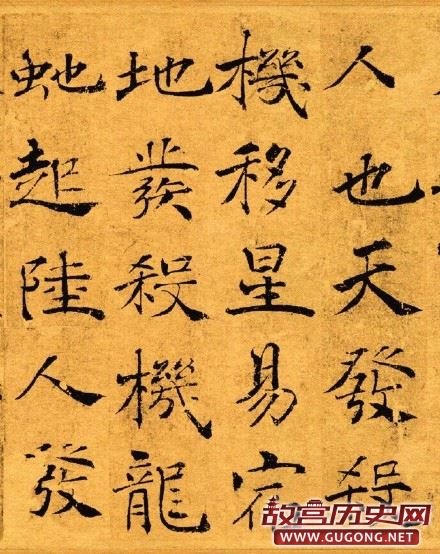 人也天發殺
機移星易宿
地發殺機龍
虵起陸人發
故宫历史网
WWW.GUGONG.NET